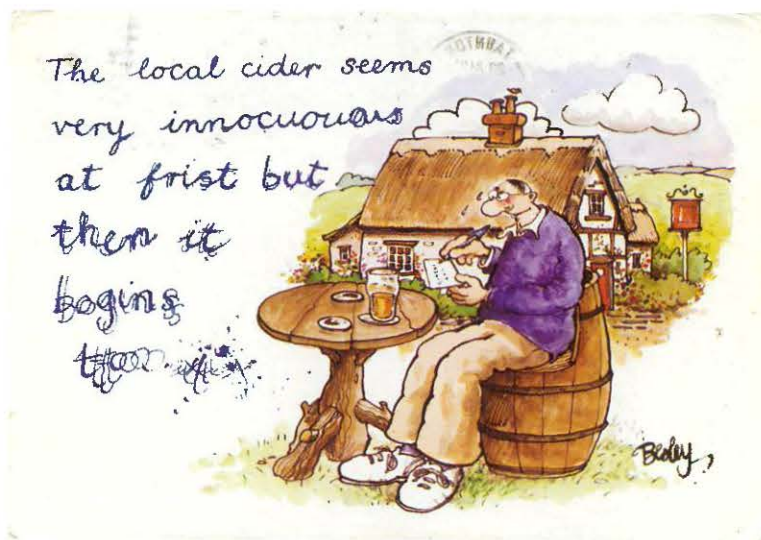 The local cider seems
very innocuouous
at frist but
then it
bogins
Besley,